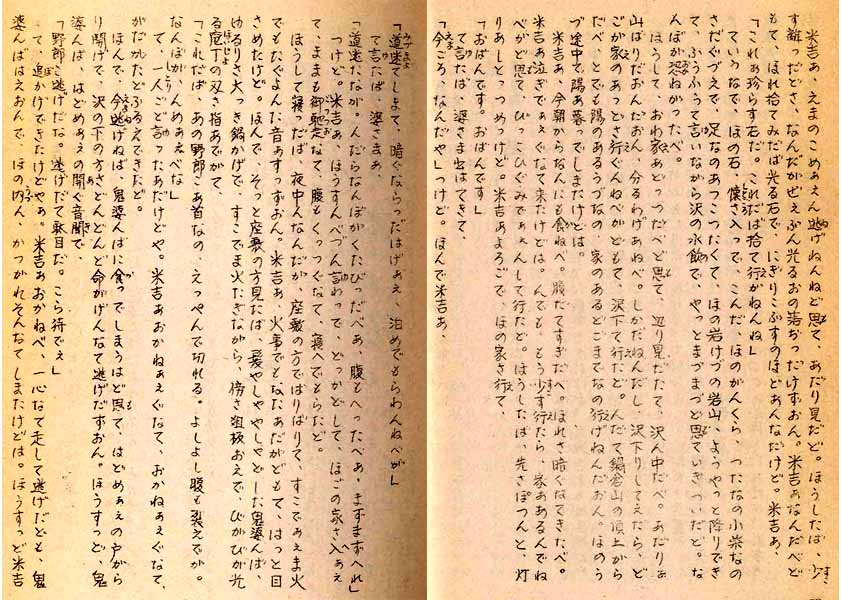 米吉ぁ、えまのこめぁえん逃げねんねど思て、あだり見だど。ほうしたば、少
す離っだどさ、なんだがぜえぶん光るおの落ぢったけずおん。米吉ぁなんだべど
もて、ほれ拾てみだば光る石で、にぎりこぶすのほどあんなだけど。米吉ぁ、
「これぁ珍らす石だ。これだば拾て行がねんね」
ていうなで、ほの石、懐さ入っで、こんだ、ほのがんくら、つたなの小柴なの
さだぐづえで、足なのあつこつたくて、ほの岩けづの岩山、ようやっと降りでき
て、ふうふうて言いながら沢の水飲で、やっとまづまづど思ていきつだど。な
んぼが恐ねかったべ。
ほうして、おわ家ぁどっつだべど思て、辺り見だたて、沢ん中だべ。あだりぁ
山ばりだおんだおん。分るわげあねべ。しかだねんだし、沢下りしてえだら、ど
ごが家のあっとさ行ぐんねべがどもて、沢下て行だど。んだて鍋倉山の頂上から
だべ、とでも陽のあるうづなの、家のあるどごまでなの行げねんだおん。ほのう
づ途中で陽ぁ暮ってしまたけどは。
米吉ぁ、今朝からなんにも食ねべ。腹だてすぎだべ。ほれさ暗ぐなてきたべ。
米吉ぁ泣ぎでぁえぐなて来たけどは。んでも、とう少す行たら、家ぁあるんでね
べがど思て、びっこひぐみでぁえんして行だど。ほうしたば、先さぽつんと、灯
りぁしとっつめっけど。米吉ぁよろこで、ほの家さ行て、
「おばんです。おばんです」
て言たば、婆さま出はてきて、
「今ころ、なんだや」つけど。ほんで米吉ぁ、
「道迷てしまて、暗ぐならったはげぁえ、泊めでもらわんねべが」
て言たば、婆さまぁ、
「道迷たなが。んだらなんぼがくたびっだべぁ、腹もへったべぁ、まずまずへれ」
つけど。米吉ぁ、ほうすんべづん言わって、とっかどして、ほごの家さ入ぁえ
て、ままも御馳走なて、腹もくっつぐなて、寝へでもらたど。
ほうして寝っだば、夜中んなんだが、座敷の方でばりばりて、すこでぁえま火
でもたぐよんた音ぁすっずおん。米吉ぁ、火事でもなたあだがどもて、はっと目
さめたけど。ほんで、そっと座敷の方見たば、髪やしゃやしゃどした鬼婆んば、
ゆるりさ大っき鍋かげで、すこでま火たぎながら、傍さ俎板おえで、びがびが光
る庖丁の刃さ指あでがて、
「これだば、あの野郎こあ首なの、えっぺんで切れる。よしよし腹も裂えでが。
なんぼが、んめぁえべな」
て、一人ごど言ったあだけどや。米吉ぁおかねぁえぐなて、おかねぁえぐなて、
がだがたどふるえできたど。
ほんで、今逃げねば、鬼婆んばに食っでしまうはど思て、はどめぁえの戸がら
り開げで、沢の下の方さどんどんど命がげんなて逃げだずおん。ほうすっど、鬼
婆んば、はどめぁえの開ぐ音聞で、
「野郎こ逃げだな。逃げだて駄目だ。こら待でぇ」
て、追かげできたけどやぁ。米吉ぁおかねべ、一心なて走して逃げだども、鬼
婆んばはえおんで、ほの内ん、かつがれそんなてしまたけどは。ほうすっど米吉